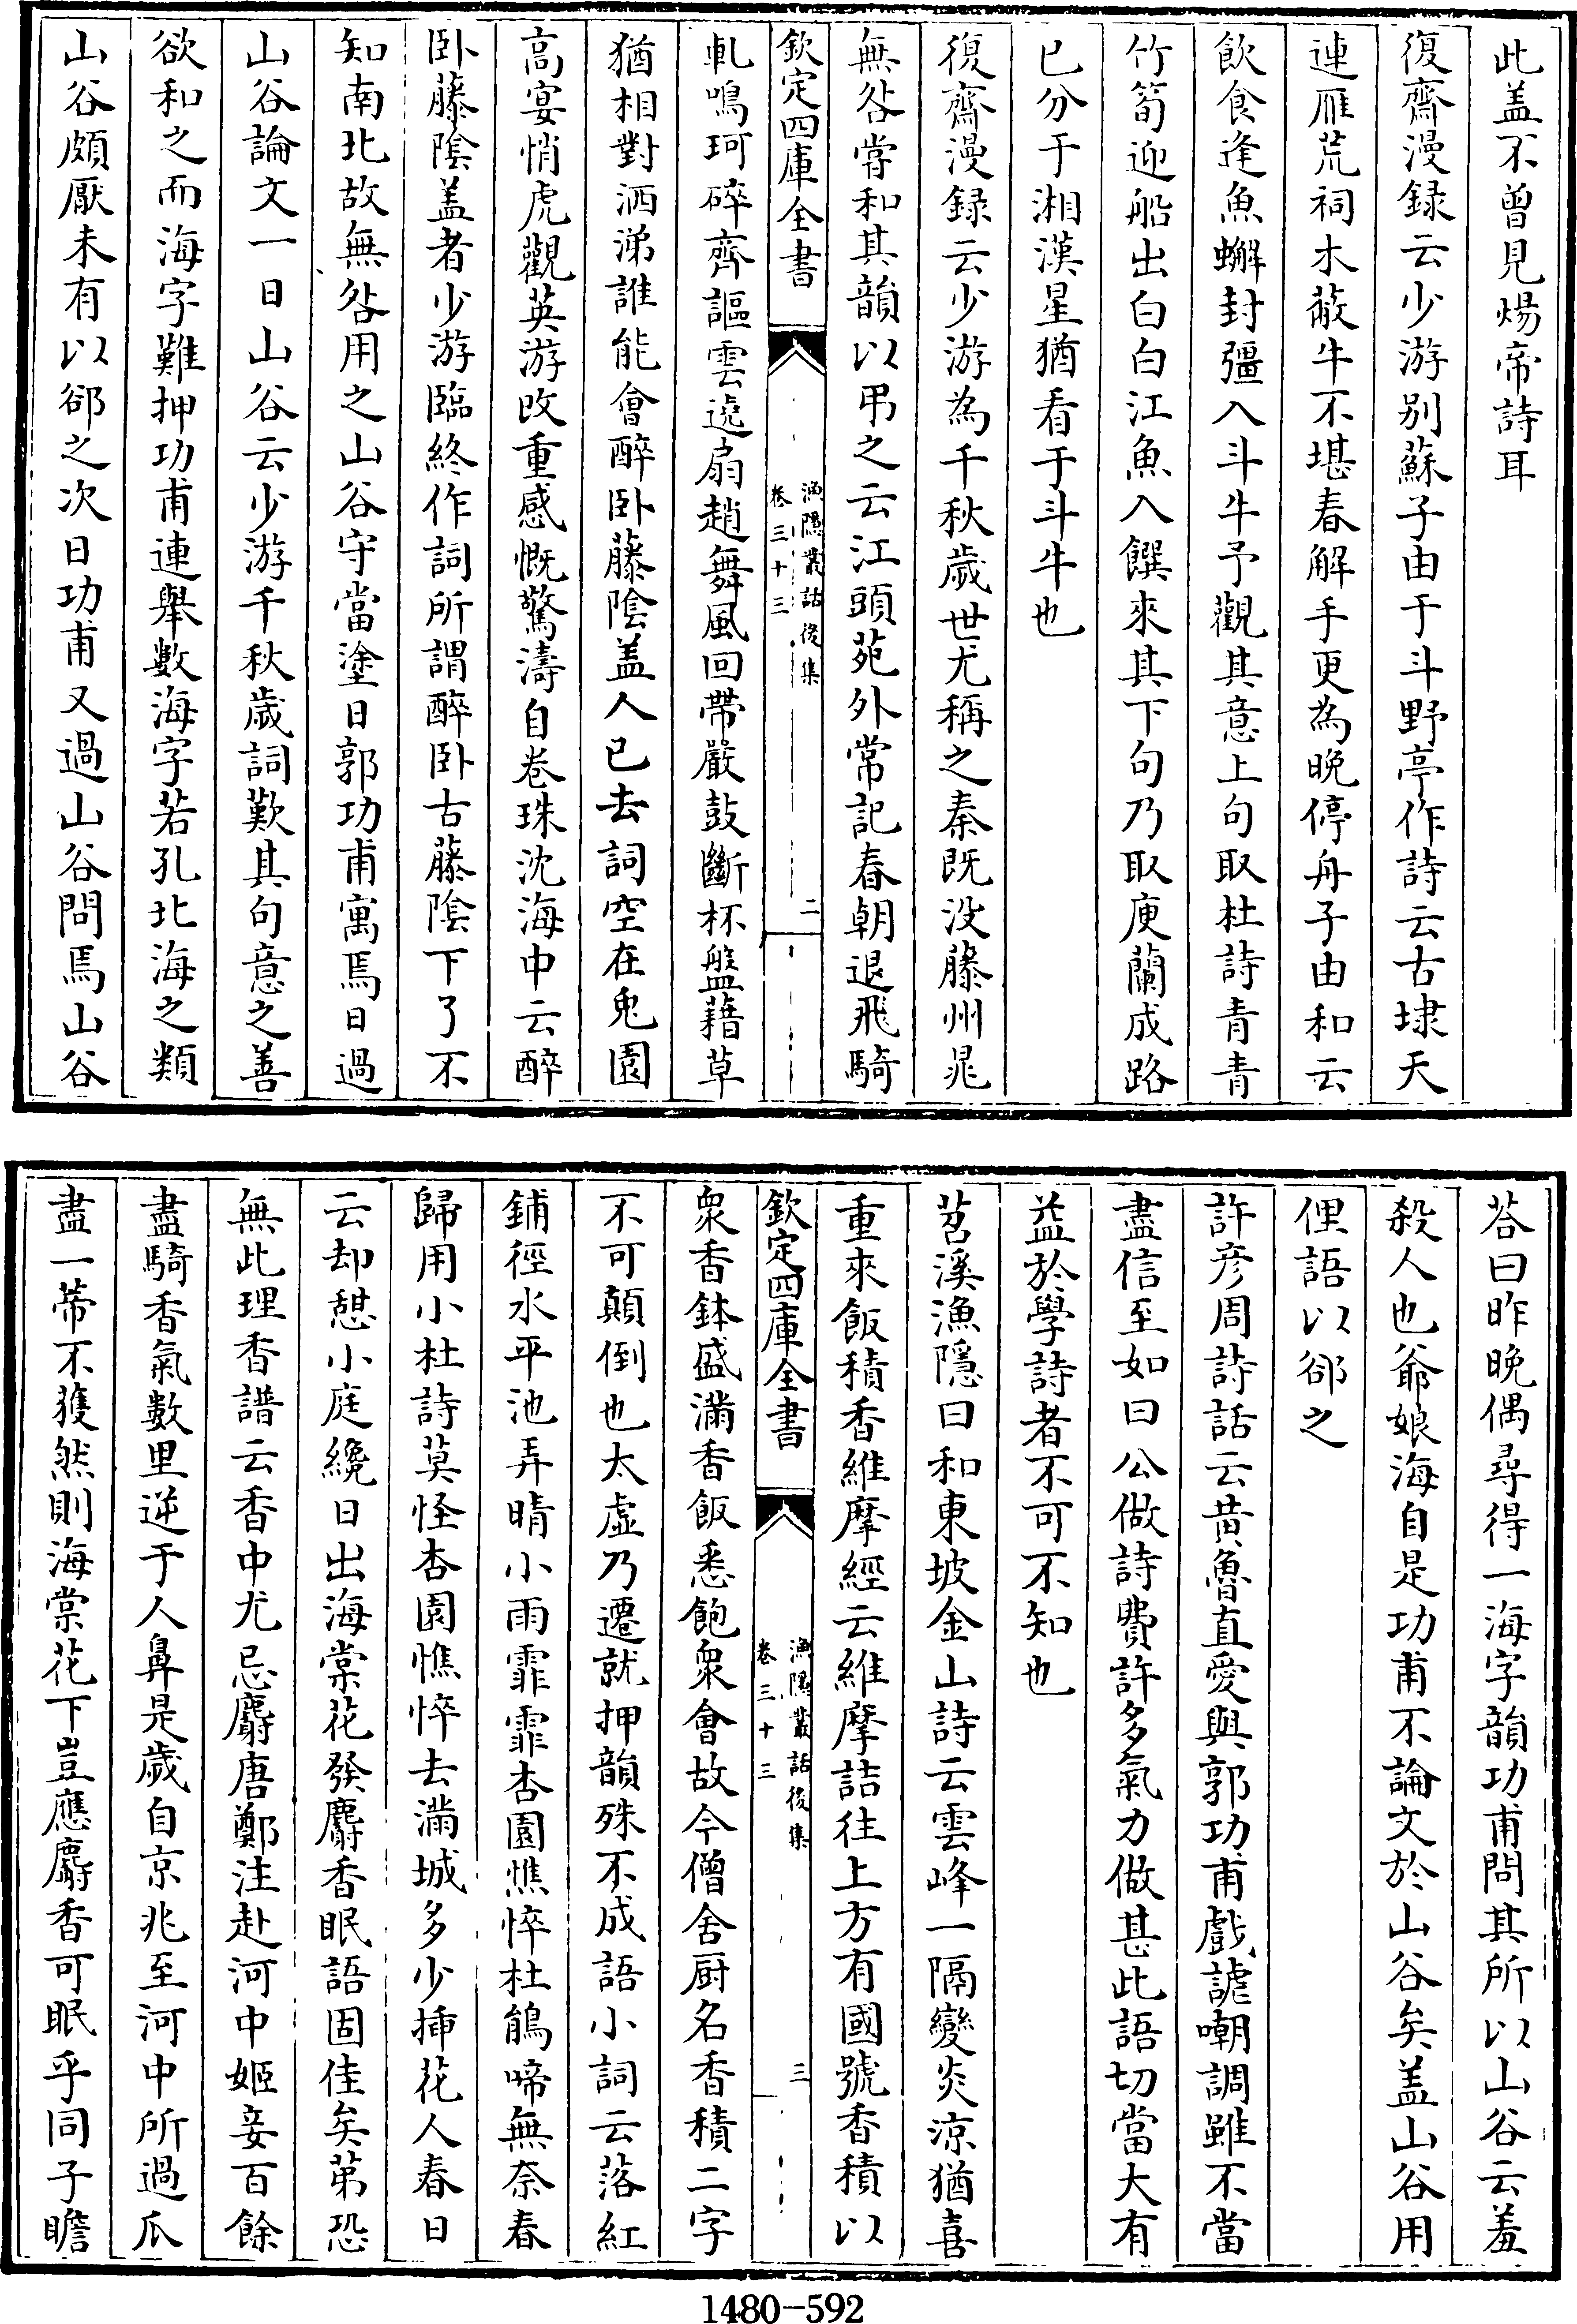 此盖不曾見煬帝詩耳
復齋漫録云少游别蘇子由于斗野亭作詩云古埭天
連雁荒祠木蔽牛不堪春解手更為晚停舟子由和云
飲食逢魚蠏封彊入斗牛予觀其意上句取杜詩青青
竹筍迎船出白白江魚入饌來其下句乃取庾蘭成路
已分于湘漢星猶看于斗牛也
復齋漫録云少游為千秋歲世尤稱之秦既没藤州晁
無咎嘗和其韻以弔之云江頭苑外常記春朝退飛騎
欽定四庫全書
漁隱叢話後集
卷三十三
二
軋鳴珂碎齊謳雲遶扇趙舞風回帶嚴鼓斷杯盤藉草
猶相對洒涕誰能會醉卧藤陰盖人已去詞空在兎園
高宴悄虎觀英游改重感慨驚濤自卷珠沈海中云醉
卧藤陰盖者少游臨終作詞所謂醉卧古藤陰下了不
知南北故無咎用之山谷守當塗日郭功甫寓焉日過
山谷論文一日山谷云少游千秋歲詞歎其句意之善
欲和之而海字難押功甫連舉數海字若孔北海之類
山谷頗厭未有以郤之次日功甫又過山谷問焉山谷
荅曰昨晚偶尋得一海字韻功甫問其所以山谷云羞
殺人也爺娘海自是功甫不論文於山谷矣盖山谷用
俚語以郤之
許彦周詩話云黄魯直愛與郭功甫戲謔嘲調雖不當
盡信至如曰公做詩費許多氣力做甚此語切當大有
益於學詩者不可不知也
苕溪漁隱曰和東坡金山詩云雲峰一隔變炎涼猶喜
重來飯積香維摩經云維摩詰往上方有國號香積以
欽定四庫全書
漁隱叢話後集
卷三十三
三
衆香鉢盛滿香飯悉飽衆會故今僧舍厨名香積二字
不可顛倒也太虚乃遷就押韻殊不成語小詞云落紅
鋪徑水平池弄晴小雨霏霏杏園憔悴杜鵑啼無奈春
歸用小杜詩莫怪杏園憔悴去滿城多少挿花人春日
云却憩小庭纔日出海棠花發麝香眠語固佳矣第恐
無此理香譜云香中尤忌麝唐鄭注赴河中姬妾百餘
盡騎香氣數里逆于人鼻是歲自京兆至河中所過瓜
盡一蔕不獲然則海棠花下豈應麝香可眠乎同子瞻
1480-592